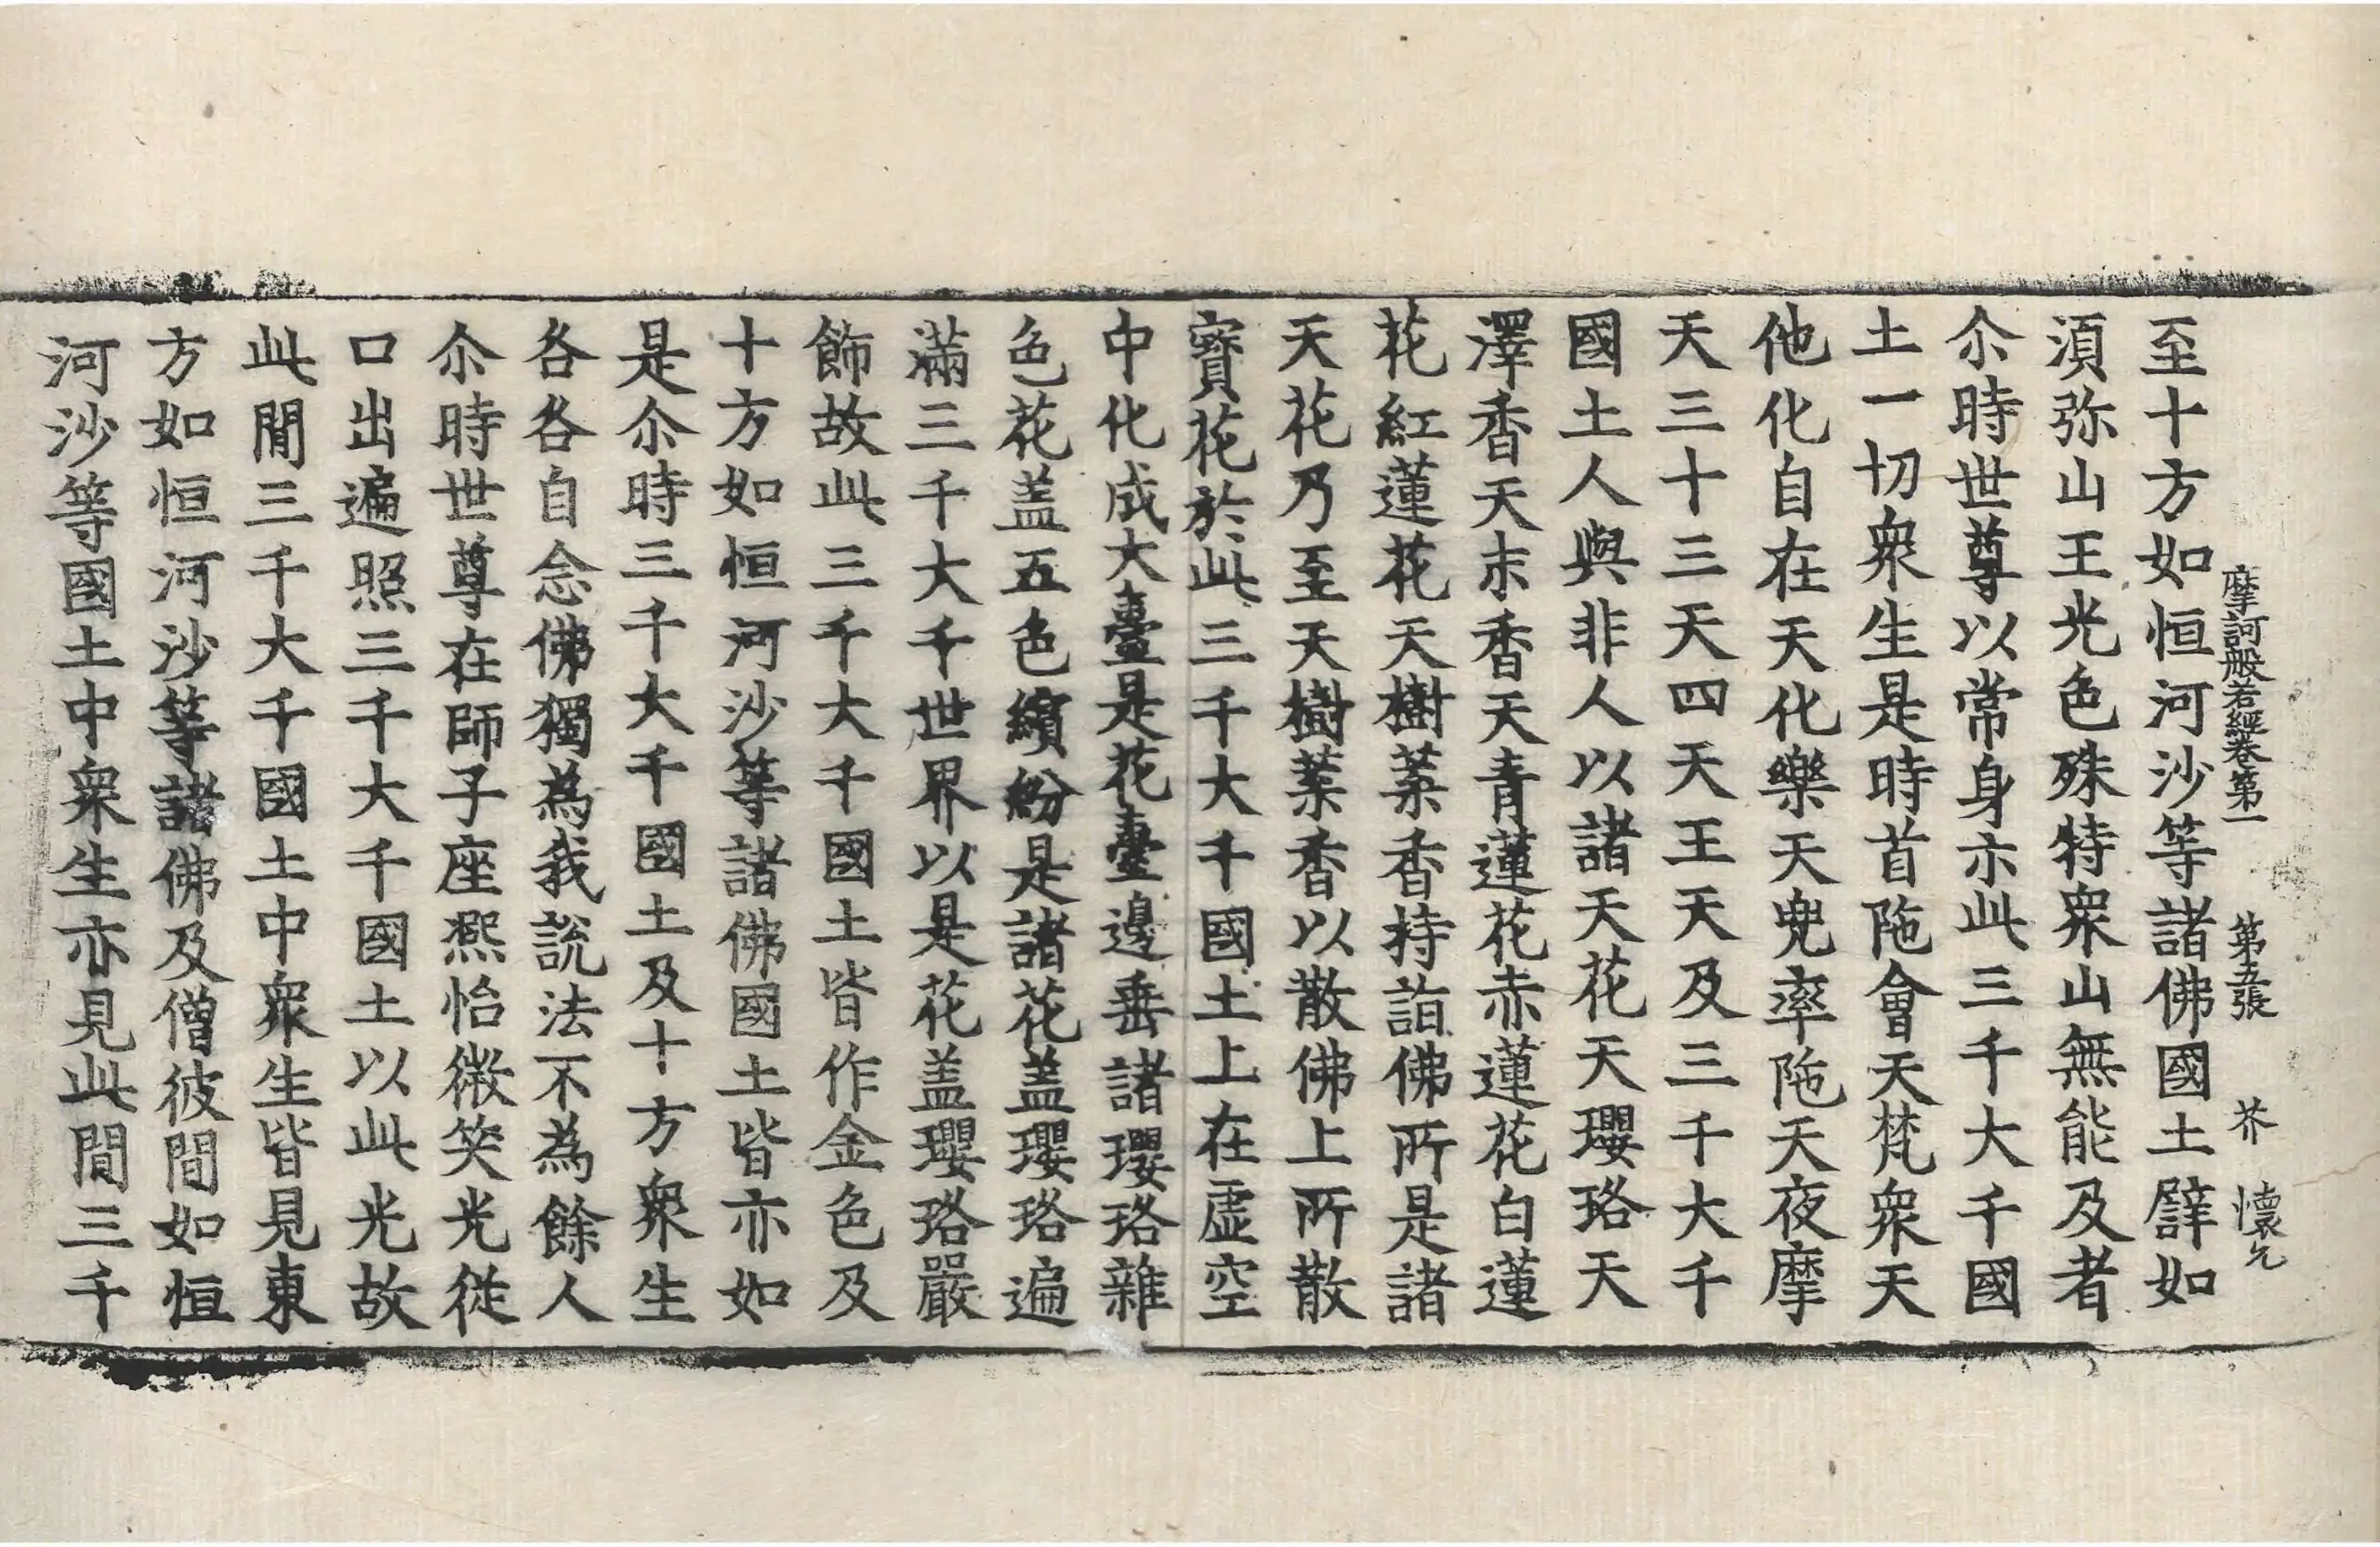 摩訶般若經卷第一 第五張 芥 懷允
至十方如恒河沙等諸佛國土譬如
湏弥山王光色殊特衆山無能及者
尒時世尊以常身示此三千大千國
土一切衆生是時首陁會天梵衆天
他化自在天化樂天兜率陁天夜摩
天三十三天四天王天及三千大千
國土人與非人以諸天花天瓔珞天
澤香天末香天青蓮花赤蓮花白蓮
花紅蓮花天樹葉香持詣佛所是諸
天花乃至天樹葉香以散佛上所散
寶花於此三千大千國土上在虛空
中化成大臺是花臺邊垂諸瓔珞雜
色花盖五色繽紛是諸花盖瓔珞遍
滿三千大千世界以是花盖瓔珞嚴
飾故此三千大千國土皆作金色及
十方如恒河沙等諸佛國土皆亦如
是尒時三千大千國土及十方衆生
各各自念佛獨為我說法不為餘人
尒時世尊在師子座熈怡微笑光從
口出遍照三千大千國土以此光故
此閒三千大千國土中衆生皆見東
方如恒河沙等諸佛及僧彼閒如恒
河沙等國土中衆生亦見此閒三千